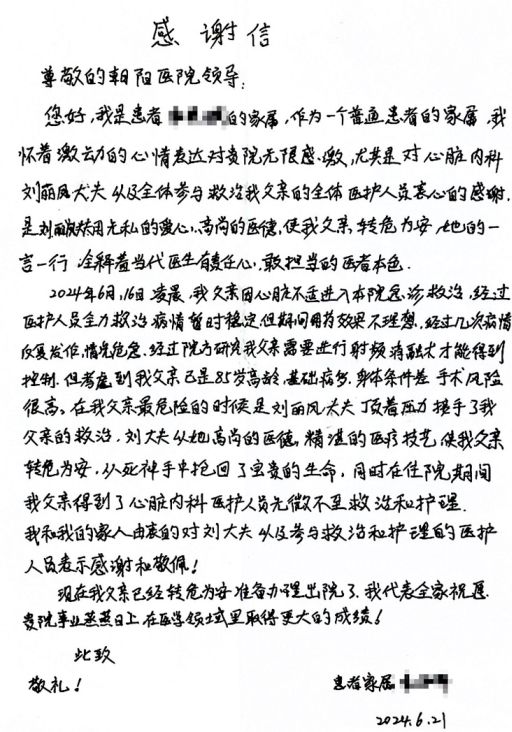 感谢信
尊敬的朝阳医院领导:
您好,我是患者的家属,作为一个普通患者的家属,我
怀着激动的心情表达对贵院无限感激,尤其是对心脏内科
刘丽凤大夫以及全体参与救治我父亲的全体医护人员衷心的感谢.
是刘丽凤大夫用无私的爱心,高尚的医德,使我父亲,转危为安,她的一
言一行诠释着当代医生有责任心,敢担当的医者本色.
2024年6月,16日凌晨,我父亲因心脏不适进入本院急诊救治,经过
医护人员全力救治病情暂时稳定,但期间用药效果不理想,经过几次病情
反复发作,情况危急,经过院方研究我父亲需要进行射频消融术才能得到
控制.但考虑到我父亲已是85岁高龄,基础病多,身体条件差手术风险
很高。在我父亲最危险的时候是刘丽凤大夫顶着压力接手了我
父亲的救治.刘大夫以她高尚的医德,精湛的医疗技艺,使我父亲
转危为安.从死神手中抢回了宝贵的生命,同时在住院期间
我父亲得到了心脏内科医护人员无微不至救治和护理.
我和我的家人由衷的对刘大夫以及参与救治和护理的医护
人员表示感谢和敬佩!
现在我父亲已经转危为安准备办理出院了,我代表全家祝愿
贵院事业蒸蒸日上在医学领域里取得更大的成绩!
此致
敬礼!
患者家属
2024.6.21